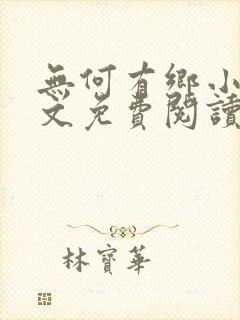 無何有鄉小
文免費閱讀
林寶華